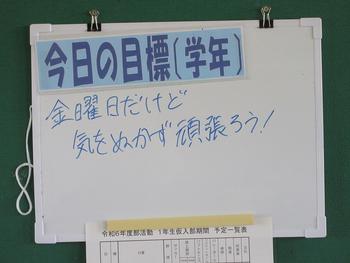 今日の目標(学年)
金曜日だけど
気をぬかず頑張ろう!
令和6年度部活動 1年生仮入部期間 予定一覧表